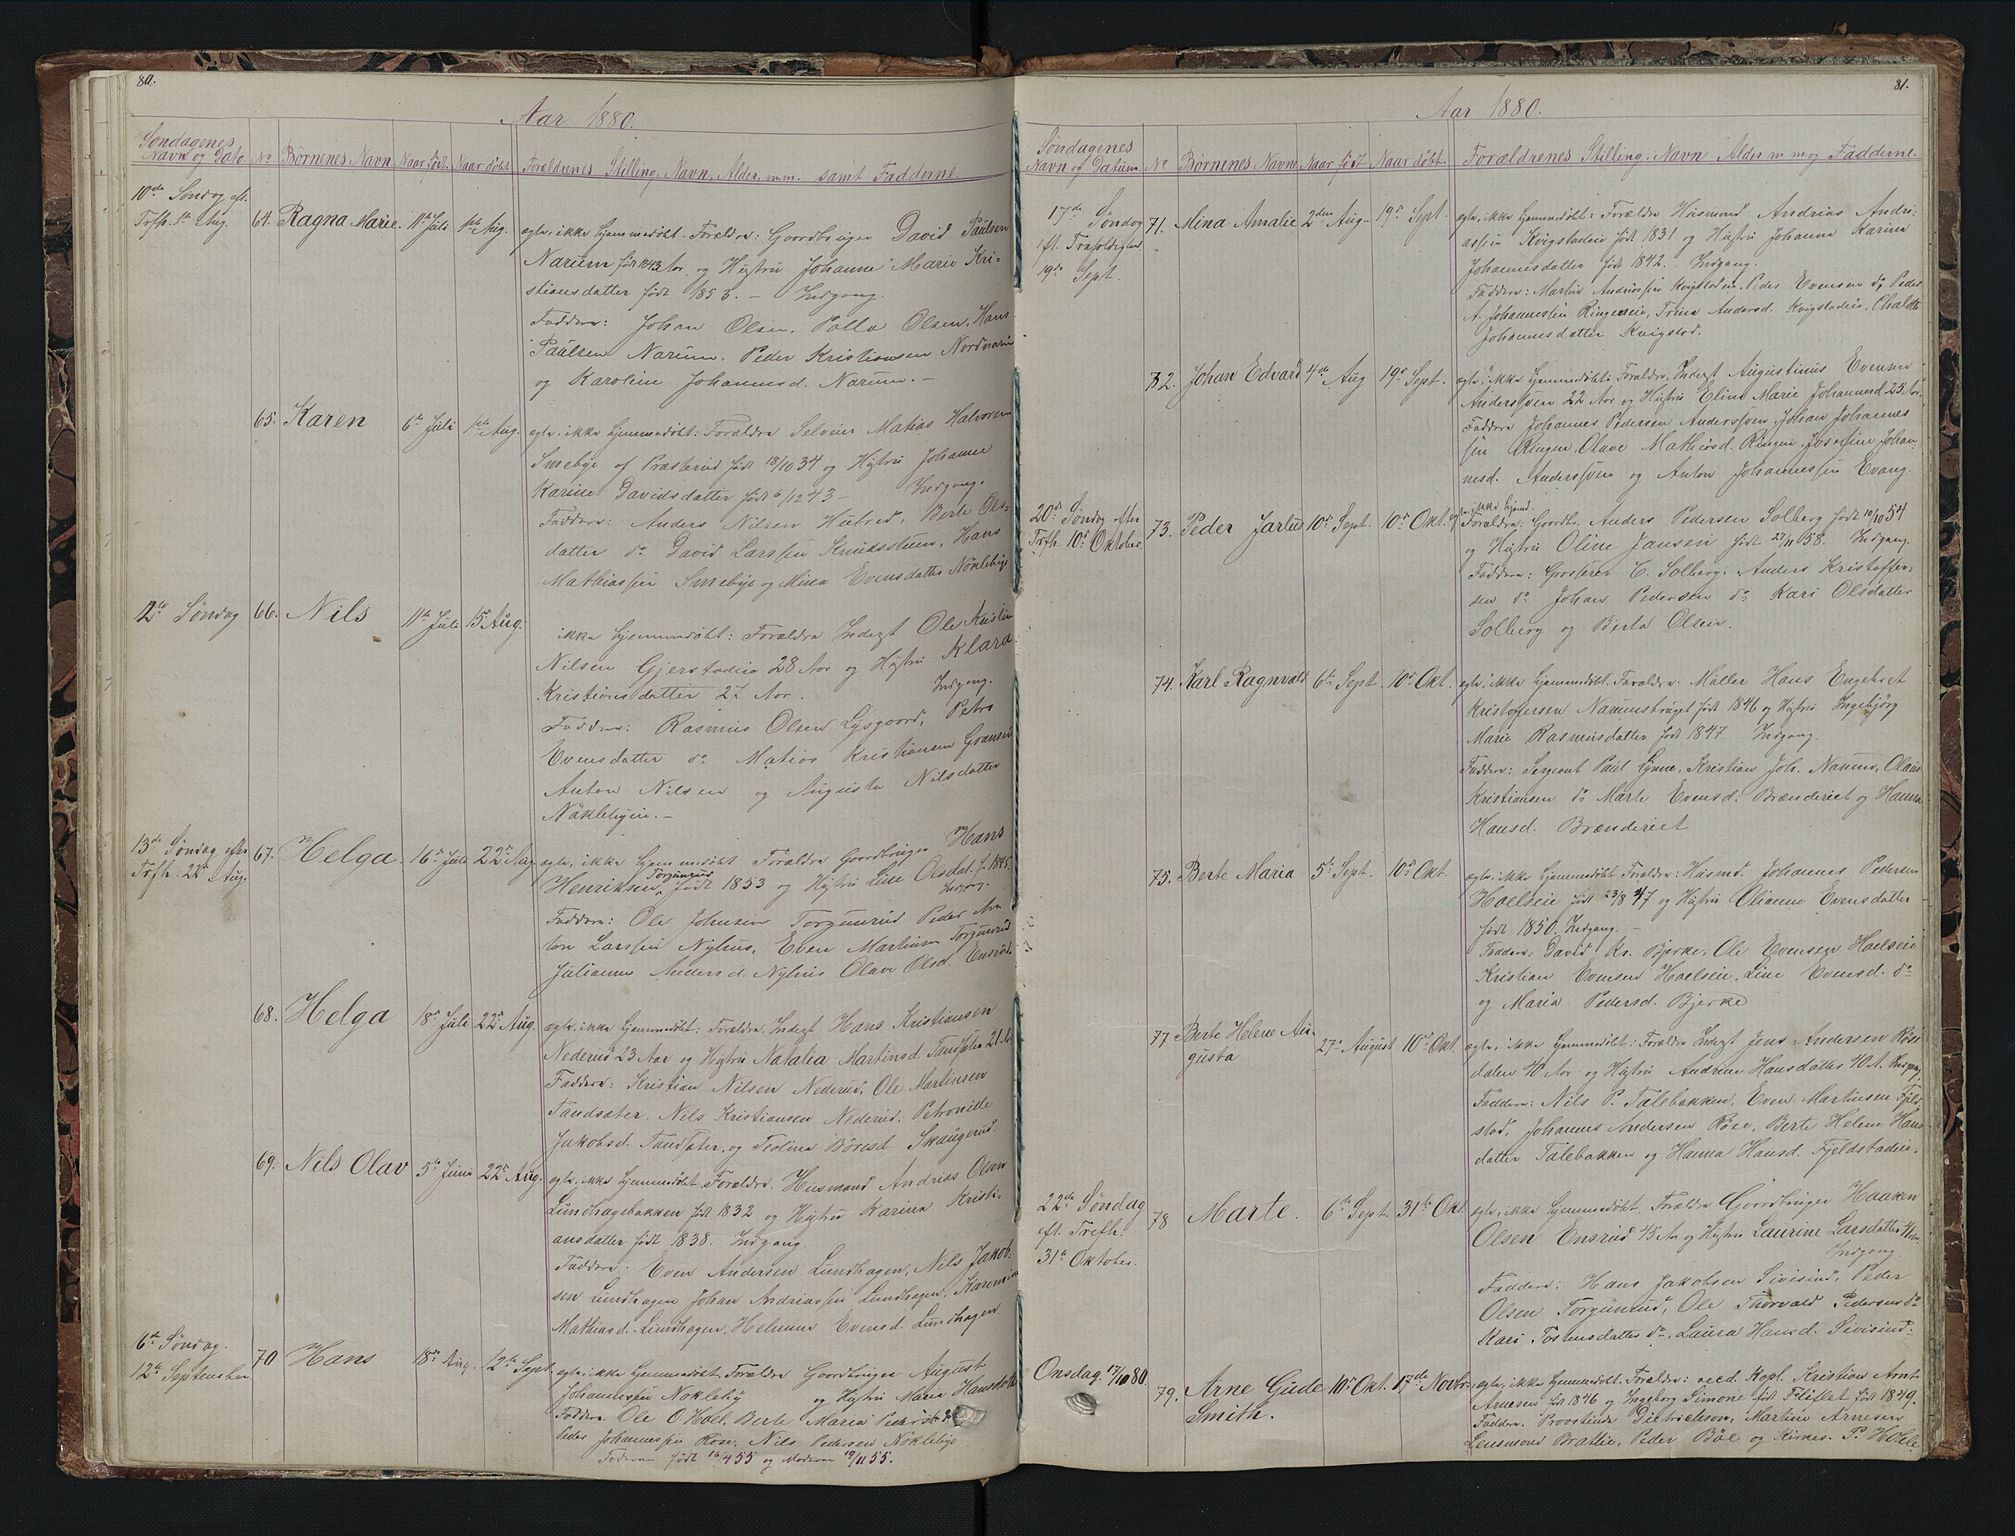 80.
Aar 1880.
Søndagenes Navn og Dato No Børnenes Navn Naar født Naar døbt Forældrenes Stilling, Navn, Alder, m.m. samt Fadderne
10de Søndag eft. Trfh. 1ste Aug.
64. Ragna Marie. 11te Juli 1ste Aug. ægte, ikke hjemmedøbt. Forældre: Gaardbruger David Paulsen
Narum født 1843 Aar og Hustru Johanne Marie Kri-
stiansdatter født 1853. — Indgang.
Faddere: Johan Olsen, Olsen, Hans
Paulsen Narum, Peder Kristiansen
og Karoline Johannesd. Narum. —
65. Karen 6te Juli 1ste Aug. ægte, ikke hjemmedøbt: Forældre Selveier Matias Halvorsen
Smebye af Præsterud født 18/10 34 og Hustru Johanne
Karine Davidsdatter født 6/12 43 — Indgang.
Faddere: Anders Nilsen, Berte Ols-
datter do David Larssen, Hans
Mathiassen Smebye og Mina Evensdatter Nøklebye
12te Søndag
66. Nils 11te Juli 15de Aug. ikke hjemmedøbt: Forældre Inderst Ole Kristian
Nilsen Gjerstadeie 28 Aar og Hustru Klara
Kristiansdatter 27 Aar. Indgang.
Faddere: Rasmus Olsen Lysgaard, Petra
Evensdatter do Matias Kristiansen
Anton Nilsen og Augusta Nilsdatter
Nøklebyeie. —
13de Søndag efter Trfh. 22de Aug.
67. Helga. 16de Juli 22de Aug. ægte, ikke hjemmedøbt Forældre Gaardbruger Hans
Henriksen Torgunrud født 1853 og Hustru Lise Olsdat. f. 1845.
Indgang.
Faddere: Ole Johnsen Torgunrud Peder An-
ton Larssen Nyhus, Even Martinsen Torgunrud
Julianne Andersd. Nyhus Olave Olsd. Ensrud
68. Helga 18de Juli 22de Aug. ægte, ikke hjemmedøbt: Forældre, Inderst Hans Kristiansen
Nederud 23 Aar og Hustru Natalia Martinsd. Tandsæter 21.
Faddere: Kristian Nilsen Nederud, Ole Martinsen
Tandsæter, Nils Kristiansen Nederud, Petronille
Jakobsd. Tandsæter, og Teolina Børresd. Skaugerud.
69. Nils Olav 5te Juni 22de Aug. ægte, ikke hjemmedøbt, Forældre, Husmand Andrias Olsen
Lundhagebakken født 1832 og Hustru Karina Kristi-
ansdatter født 1838. Indgang.
Faddere: Even Andersen Lundhagen, Nils Jakob-
sen Lundhagen Johan Andriassen Lundhagen,
Mathiasd. Lundhagen, Helmine Evensd. Lundhagen
6te Søndag. 12te September
70 Hans 18de Aug. 12te Sept. ægte, ikke hjemmedøbt, Forældre Gaardbruger August
Johannessen Nøkleby og Hustru Maria Hansdatter
Faddere Ole O Hoel, Berte Maria Pedersd.
Peder Johannessen Røse, Nils Pedersen Nøklebye
Faderen født 16/4 55 og Moderen 19/11 55.
81.
Aar 1880.
Søndagenes Navn og Datum No Børnenes Navne Naar født Naar døbt. Forældrenes Stilling, Navn Alder m.m og Fadderne
17de Søndag eft. Trefoldighed 19de Sept.
71. Mina Amalie 2den Aug. 19de Sept. ægte, ikke hjemmedøbt: Forældre Husmand Andrias Andri-
assen Kvigstadeie født 1831 og Hustru Johanne Karine
Johannesdatter født 1842. Indgang.
Faddere: Martin Andriassen Kvigstadeie, Peder Evensen do, Peder
A. Johannessen Ringerseie, Trine Andersd. Kvigstadeie, Chalotte
Johannesdatter Kvigstad.
72. Johan Edvard 4de Aug 19de Sept. ægte, ikke hjemmedøbt: Forældre, Inderst Augustinus Evensen
Anderssveen 22 Aar og Hustru Eline Marie Johannesd 25 Aar.
Faddere Johannes Pedersen Anderssveen, Johan Johannes
sen Ringen Olave Mathiasd. Ringen, Josefine Johan-
nesd. Anderssveen og Anton Johannessen Evang.
20de Søndag efter Trfh. 10de Oktober
73. Peder Jarlus 10de Sept. 10de Okt. ægte, ikke hjemd.
Forældre: Gaardbr. Anders Pedersen Solberg født 10/10 54
og Hustru Oline Jansen født 27/11 58. Indgang.
Faddere: Grosserer C. Solberg, Anders Kristoffer-
sen do Johan Pedersen do Kari Olsdatter
Solberg og Berta Olsen.
74. Karl Ragnvald 6te Sept. 10de Okt. ægte, ikke hjemmedøbt. Forældre: Møller Hans Engebret
Kristofersen Narumsbruget født 1846 og Hustru Ingebjørg
Marie Rasmusdatter født 1847. Indgang.
Faddere: Sergeant Paul Lynne, Kristian Joh. Narum, Olaus
Kristiansen do Marte Evensd. Brænderiet og Hanna
Hansd. Brænderiet
75. Berte Maria 5te Sept. 10de Okt. ægte, ikke hjemmedøbt Forældre: Husmd. Johannes Pedersen
Hoelseie født 23/8 47 og Hustru Olianne Evensdatter
født 1850. Indgang. —
Faddere: David Kr. Bjerke, Ole Evensen Hoelseie
Kristian Evensen Hoelseie, Lise Evensd. do
og Maria Pedersd. Bjerke
77 Berte Helene Au-
gusta 27de August 10de Okt. ægte, ikke hjemmedøbt: Forældre Inderst Jens Andersen Røse
dalen 40 Aar og Hustru Andrine Hansdatter 40 A. Indgang
Faddere: Nils P. Talebakken, Even Martinsen Fjeld-
stad, Johannes Andersen Røse, Berte Helene Hans-
datter Talebakken og Hanna Hansd. Fjeldstadeie.
22de Søndag eft. Trefh. 31te Oktober.
78 Marte. 6te Sept. 31te Okt. ægte, ikke hjemmedøbt, Forældre Gaardbruger Haaken
Olsen Ensrud 45 Aar og Hustru Laurine Larsdatter
Indgang.
Faddere: Hans Jakobsen Sivisind, Peder
Olsen Torgunrud, Ole Thorvald Pedersen do
Kari Tostensdatter do, Laura Hansd. Sivisind.
Onsdag 17/11 80.
79. Arne Gude
Smith. 10de Okt. 17de Novbr. ægte, ikke hjemmedøbt: Forældre: res. Kapl. Kristian Arnt
Arnesen født 1846 og Ingeborg Simone født Flifflet født 1849.
Faddere, Provstinde Dietrichson, Martine Arnesen
Lensmand Brættie, Peder Bøe og Kirkes. P. Hohle